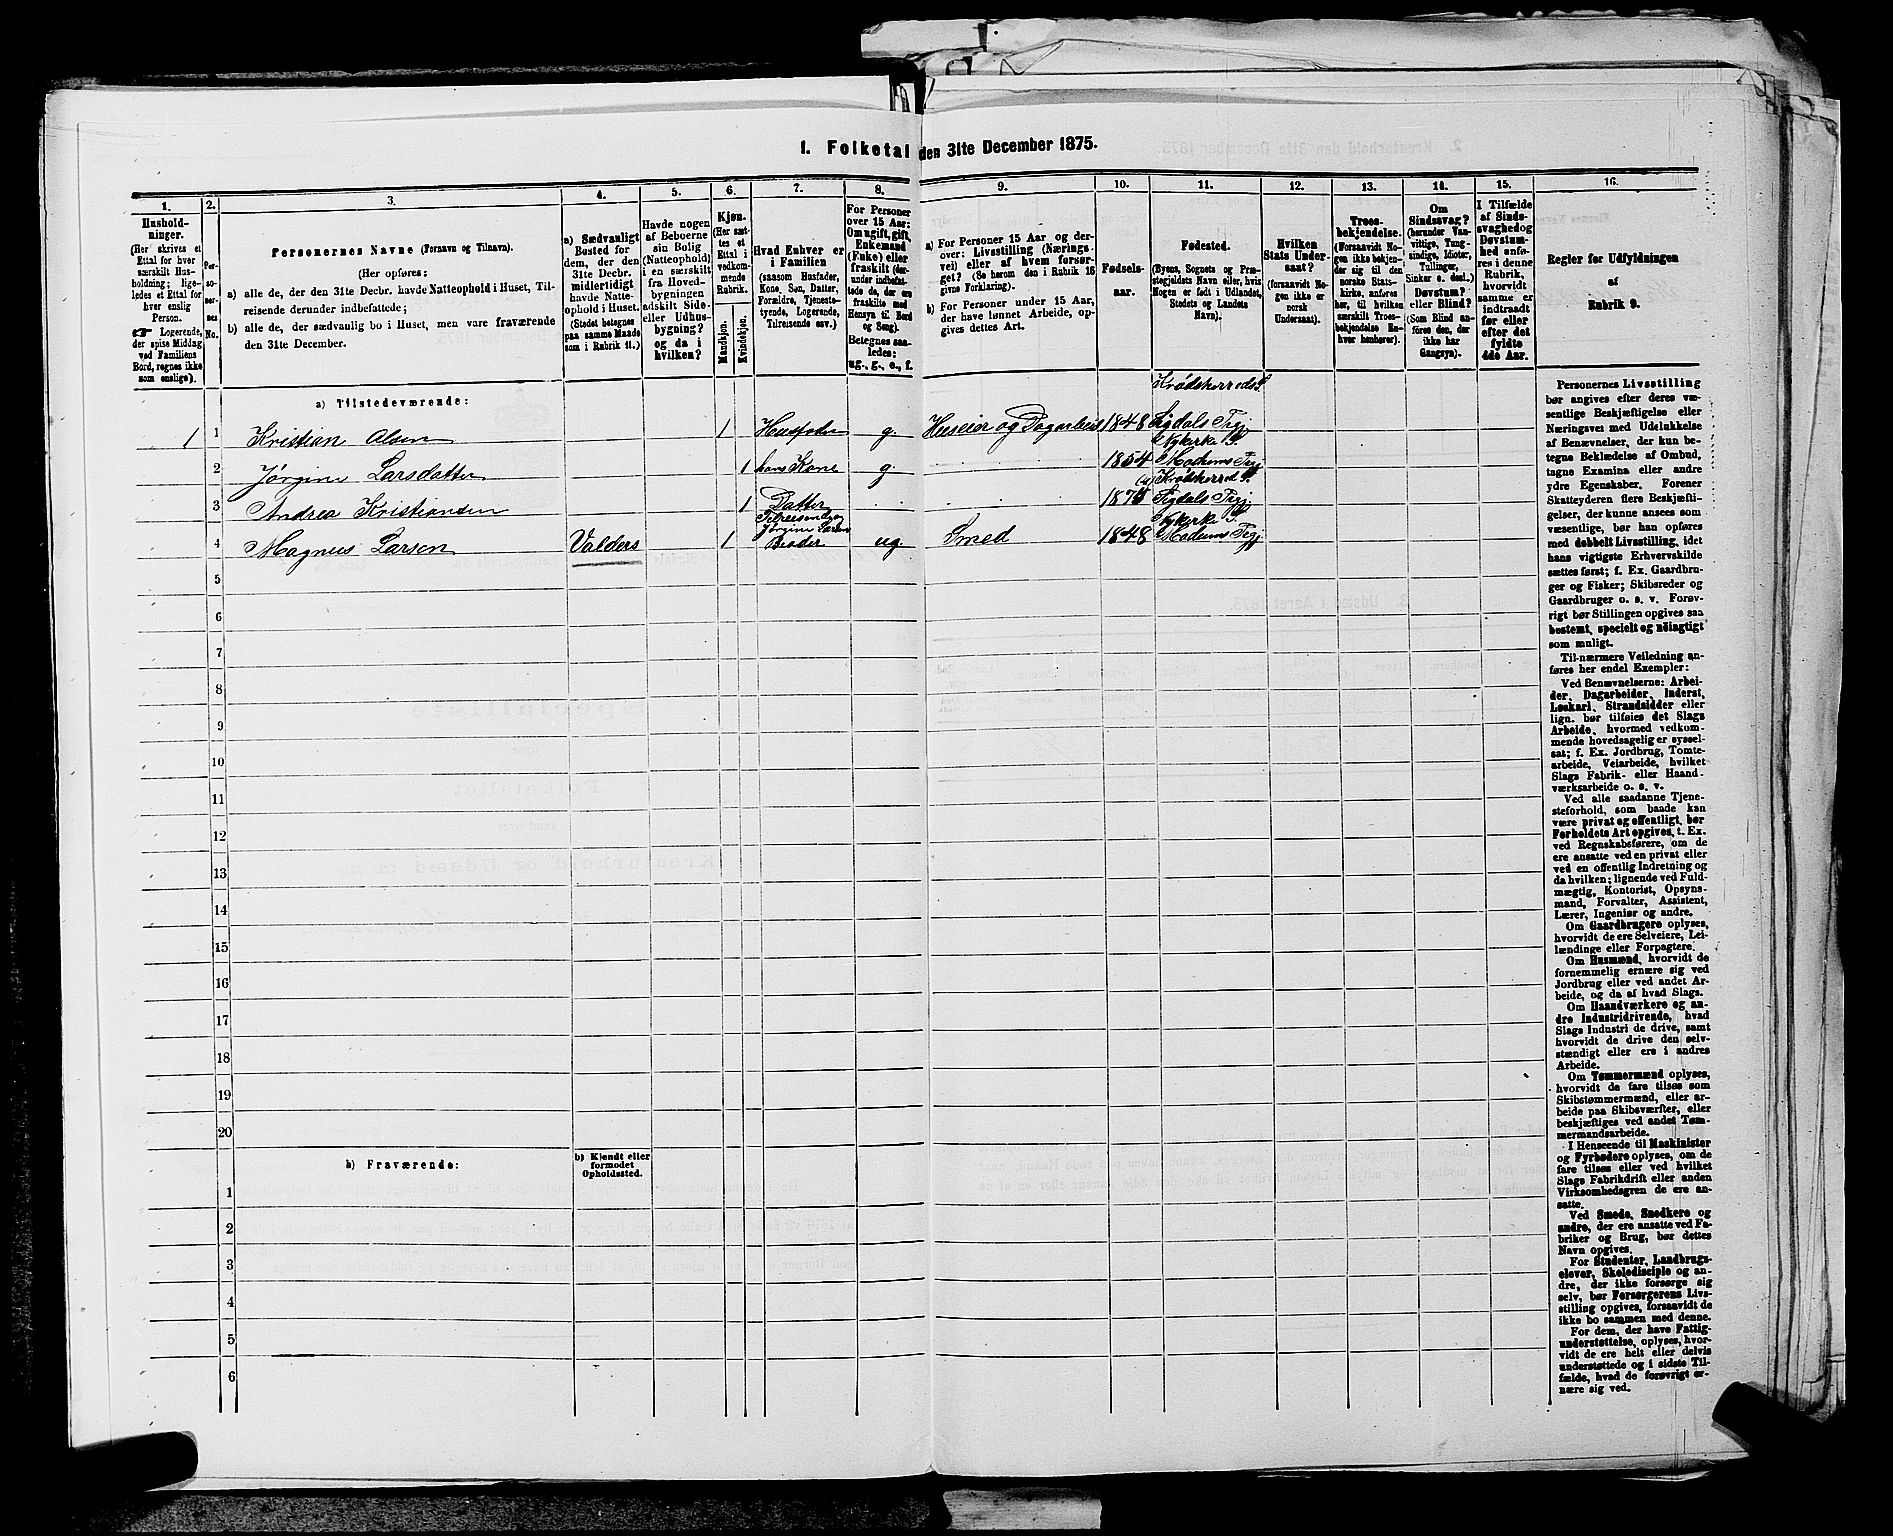 1. Folketal den 31te December 1875.
1. 2. 3. 4. 5. 6. 7. 8. 9. 10. 11. 12. 13. 14. 15. 16.
Hushold-
ninger.
(Her skrives et
Ettal for hver
særskilt Hus-
holdning; lige-
ledes et Ettal for
hver enslig
Person.
☛ Logerende,
der spise Middag
ved Familiens
Bord, regnes ikke
som enslige).
Per-
so-
ner-
nes
No.
Personernes Navne (Fornavn og Tilnavn).
(Her opføres:
a) alle de, der den 31te Decbr. havde Natteophold i Huset, Til-
reisende derunder indbefattede;
b) alle de, der sædvanlig bo i Huset, men vare fraværende
den 31te December.
a) Sædvanligt
Bosted for
dem, der den
31te Decbr.
midlertidigt
havde Natte-
ophold i Huset.
(Stedet betegnes
paa samme Maade
som i Rubrik 11.)
Havde nogen
af Beboerne
sin Bolig
(Natteophold)
i en særskilt
fra Hoved-
bygningen
adskilt Side-
eller Udhus-
bygning?
og da i
hvilken?
Kjøn.
(Her sæt-
tes et
Ettal i
vedkom-
mende
Rubrik.
Mandkjøn.
Kvindekjøn.
Hvad Enhver er
i Familien
(saasom Husfader,
Kone, Søn, Datter,
Forældre, Tjeneste-
tyende, Logerende,
Tilreisende osv.)
For Personer
over 15 Aar:
Om ugift, gift,
Enkemand
(Enke) eller
fraskilt (der-
under indbefat-
tede de, der ere
fraskilte med
Hensyn til Bord
og Seng).
Betegnes saa-
ledes:
ug., g., e., f.
a) For Personer 15 Aar og der-
over: Livsstilling (Nærings-
vei) eller af hvem forsør-
get? (Se herom den i Rubrik 16
givne Forklaring).
b) For Personer under 15 Aar,
der have lønnet Arbeide, op-
gives dettes Art.
Fødsels-
aar.
Fødested.
(Byens, Sognets og Præ-
stegjeldets Navn eller, hvis
Nogen er født i Udlandet,
Stedets og Landets
Navn).
Hvilken
Stats Under-
saat?
(forsaavidt No-
gen ikke er
norsk
Undersaat).
Troes-
bekjendelse.
(Forsaavidt No-
gen ikke bekjen-
der sig til den
norske Stats-
kirke, anføres
her, til hvilken
særskilt Troes-
bekjendelse En-
hver henhører).
Om
Sindssvag?
(herunder Van-
vittige, Tung-
sindige, Idioter,
Tullinger,
Sinker o. desl.)
Døvstum?
eller Blind?
(Som Blind an-
føres den, der
ikke har
Gangsyn).
I Tilfælde
af Sinds-
svaghed og
Døvstum-
hed anfø-
res i denne
Rubrik,
hvorvidt
samme er
indtraadt
før eller
efter det
fyldte
4de Aar.
Regler for Udfyldningen
af
Rubrik 9.
a) Tilstedeværende:
Krødsherreds S.
1 1 Kristian Olsen 1 Husfader g. Huseier og Dagarbeid 1848 Sigdals Prgj
Nykirke S.
2 Jørgine Larsdatter 1 hans Kone g. 1854 Modums Prgj
Krødsherred S.
3 Andrea Kristiansen 1 Datter 1875 Sigdals Prgj
Tilreisende
Jørgine Larsd Nykirke S.
4 Magnus Larsen Valders 1 Broder ug. Smed 1848 Modums Prgj
5
6
7
8
9
10
11
12
13
14
15
16
17
18
19
20
b) Fraværende:
b) Kjendt eller
formodet
Opholdssted.
1
2
3
4
5
6
Personernes Livsstilling
bør angives efter deres væ-
sentlige Beskjæftigelse eller
Næringsvei med Udelukkelse
af Benævnelser, der kun be-
tegne Beklædelse af Ombud,
tagne Examina eller andre
ydre Egenskaber. Forener
Skatteyderen flere Beskjæfti-
gelser, der kunne ansees som
væsentlige, bør han opføres
med dobbelt Livsstilling, idet
hans vigtigste Erhvervskilde
sættes først; f. Ex. Gaardbru-
ger og Fisker; Skibsreder og
Gaardbruger o. s. v. Forøv-
rigt bør Stillingen opgives saa
bestemt, specielt og nöiagtigt
som muligt.
Til nærmere Veiledning an-
føres her endel Exempler:
Ved Benævnelserne: Arbei-
der, Dagarbeider, Inderst,
Løskarl, Strandsidder eller
lign. bør tilføies det Slags
Arbeide, hvormed vedkom-
mende hovedsagelig er syssel-
sat; f. Ex. Jordbrug, Tomte-
arbeide, Veiarbeide, hvilket
Slags Fabrik- eller Haand-
værksarbeide o. s. v.
Ved alle saadanne Tjene-
steforhold, som baade kan
være privat og offentligt, bør
Forholdets Art opgives, t. Ex.
ved Regnskabsførere, om de
ere ansatte ved en privat eller
ved en offentlig Indretning og
da hvilken; lignende ved Fuld-
mægtig, Kontorist, Opsyns-
mand, Forvalter, Assistent,
Lærer, Ingeniør og andre.
Om Gaardbrugere oplyses,
hvorvidt de ere Selveiere, Lei-
lændinge eller Forpagtere.
Om Husmænd, hvorvidt de
fornemmelig ernære sig ved
Jordbrug eller ved andet Ar-
beide, og da af hvad Slags.
Om Haandværkere og an-
dre Industridrivende, hvad
Slags Industri de drive, samt
hvorvidt de drive den selv-
stændigt eller ere i andres
Arbeide.
Om Tømmermænd oplyses,
hvorvidt de fare tilsøs som
Skibstømmermænd, eller ar-
beide paa Skibsværfter, eller
beskjæftiges ved andet Tøm-
mermandsarbeide.
I Henseende til Maskinister
og Fyrbødere oplyses, om de
fare tilsøs eller ved hvilket
Slags Fabrikdrift eller anden
Virksomhedsgren de ere an-
satte.
Ved Smede, Snedkere og
andre, der ere ansatte ved Fa-
briker og Brug, bør dettes
Navn opgives.
For Studenter, Landbrugs-
elever, Skoledisciple og an-
dre, der ikke forsørge sig
selv, bør Forsørgerens Livs-
stilling opgives, forsaavidt de
ikke bo sammen med denne.
For dem, der have Fattig-
understøttelse, oplyses, hvor-
vidt de ere helt eller delvis
understøttede og i sidste Til-
fælde, hvad de forøvrigt er-
nære sig ved.